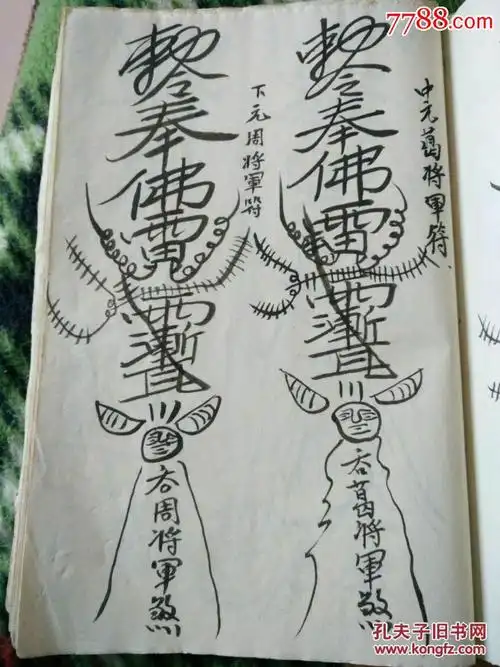 7788.com
中元葛将軍符.
敕令奉佛雷
吞葛将軍煞
下元周将軍符
敕令奉佛
吞周将軍煞
孔夫子旧书网
kongfz.com